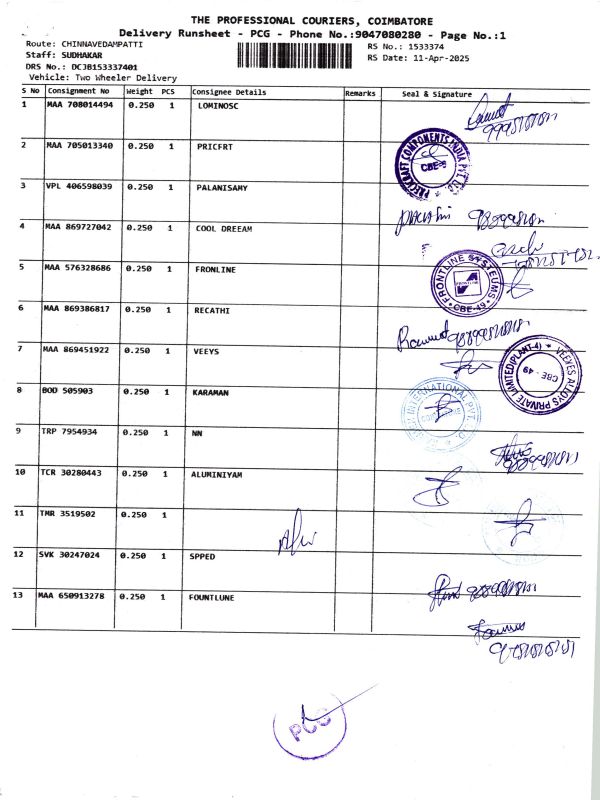 THE PROFESSIONAL COURIERS, COIMBATORE
Delivery Runsheet - PCG - Phone No.:9047080280 - Page No.:1
Route: CHINNAVEDAMPATTI
RS No.: 1533374
Staff: SUDHAKAR
RS Date: 11-Apr-2025
DRS No.: DCJB153337401
Vehicle: Two Wheeler Delivery
S No Consignment No Weight PCS Consignee Details Remarks Seal & Signature
1 MAA 708014494 0.250 1 LOMINOSC
2 MAA 705013340 0.250 1 PRICFRT
PRECICRAFT COMPONENTS INDIA PVT LTD
CBE-
3 VPL 406598039 0.250 1 PALANISAMY
4 MAA 869727042 0.250 1 COOL DREEAM
5 MAA 576328686 0.250 1 FRONLINE
FRONTLINE SYSTEUMS
FRONTLINE
CBE-49
6 MAA 869386817 0.250 1 RECATHI
7 MAA 869451922 0.250 1 VEEYS
VEEYES ALLOYS PRIVATE LIMITED(PLANT-4)
CBE - 49
8 BOD 505903 0.250 1 KARAMAN
INTERNATIONAL PVT.
9 TRP 7954934 0.250 1 NN
10 TCR 30280443 0.250 1 ALUMINIYAM
11 TMR 3519502 0.250 1
12 SVK 30247024 0.250 1 SPPED
13 MAA 650913278 0.250 1 FOUNTLUNE
PCG